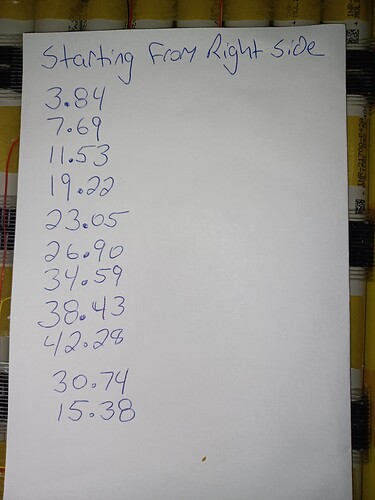 Starting From Right side
3.84
7.69
11.53
19.22
23.05
26.90
34.59
38.43
42.28
30.74
15.38